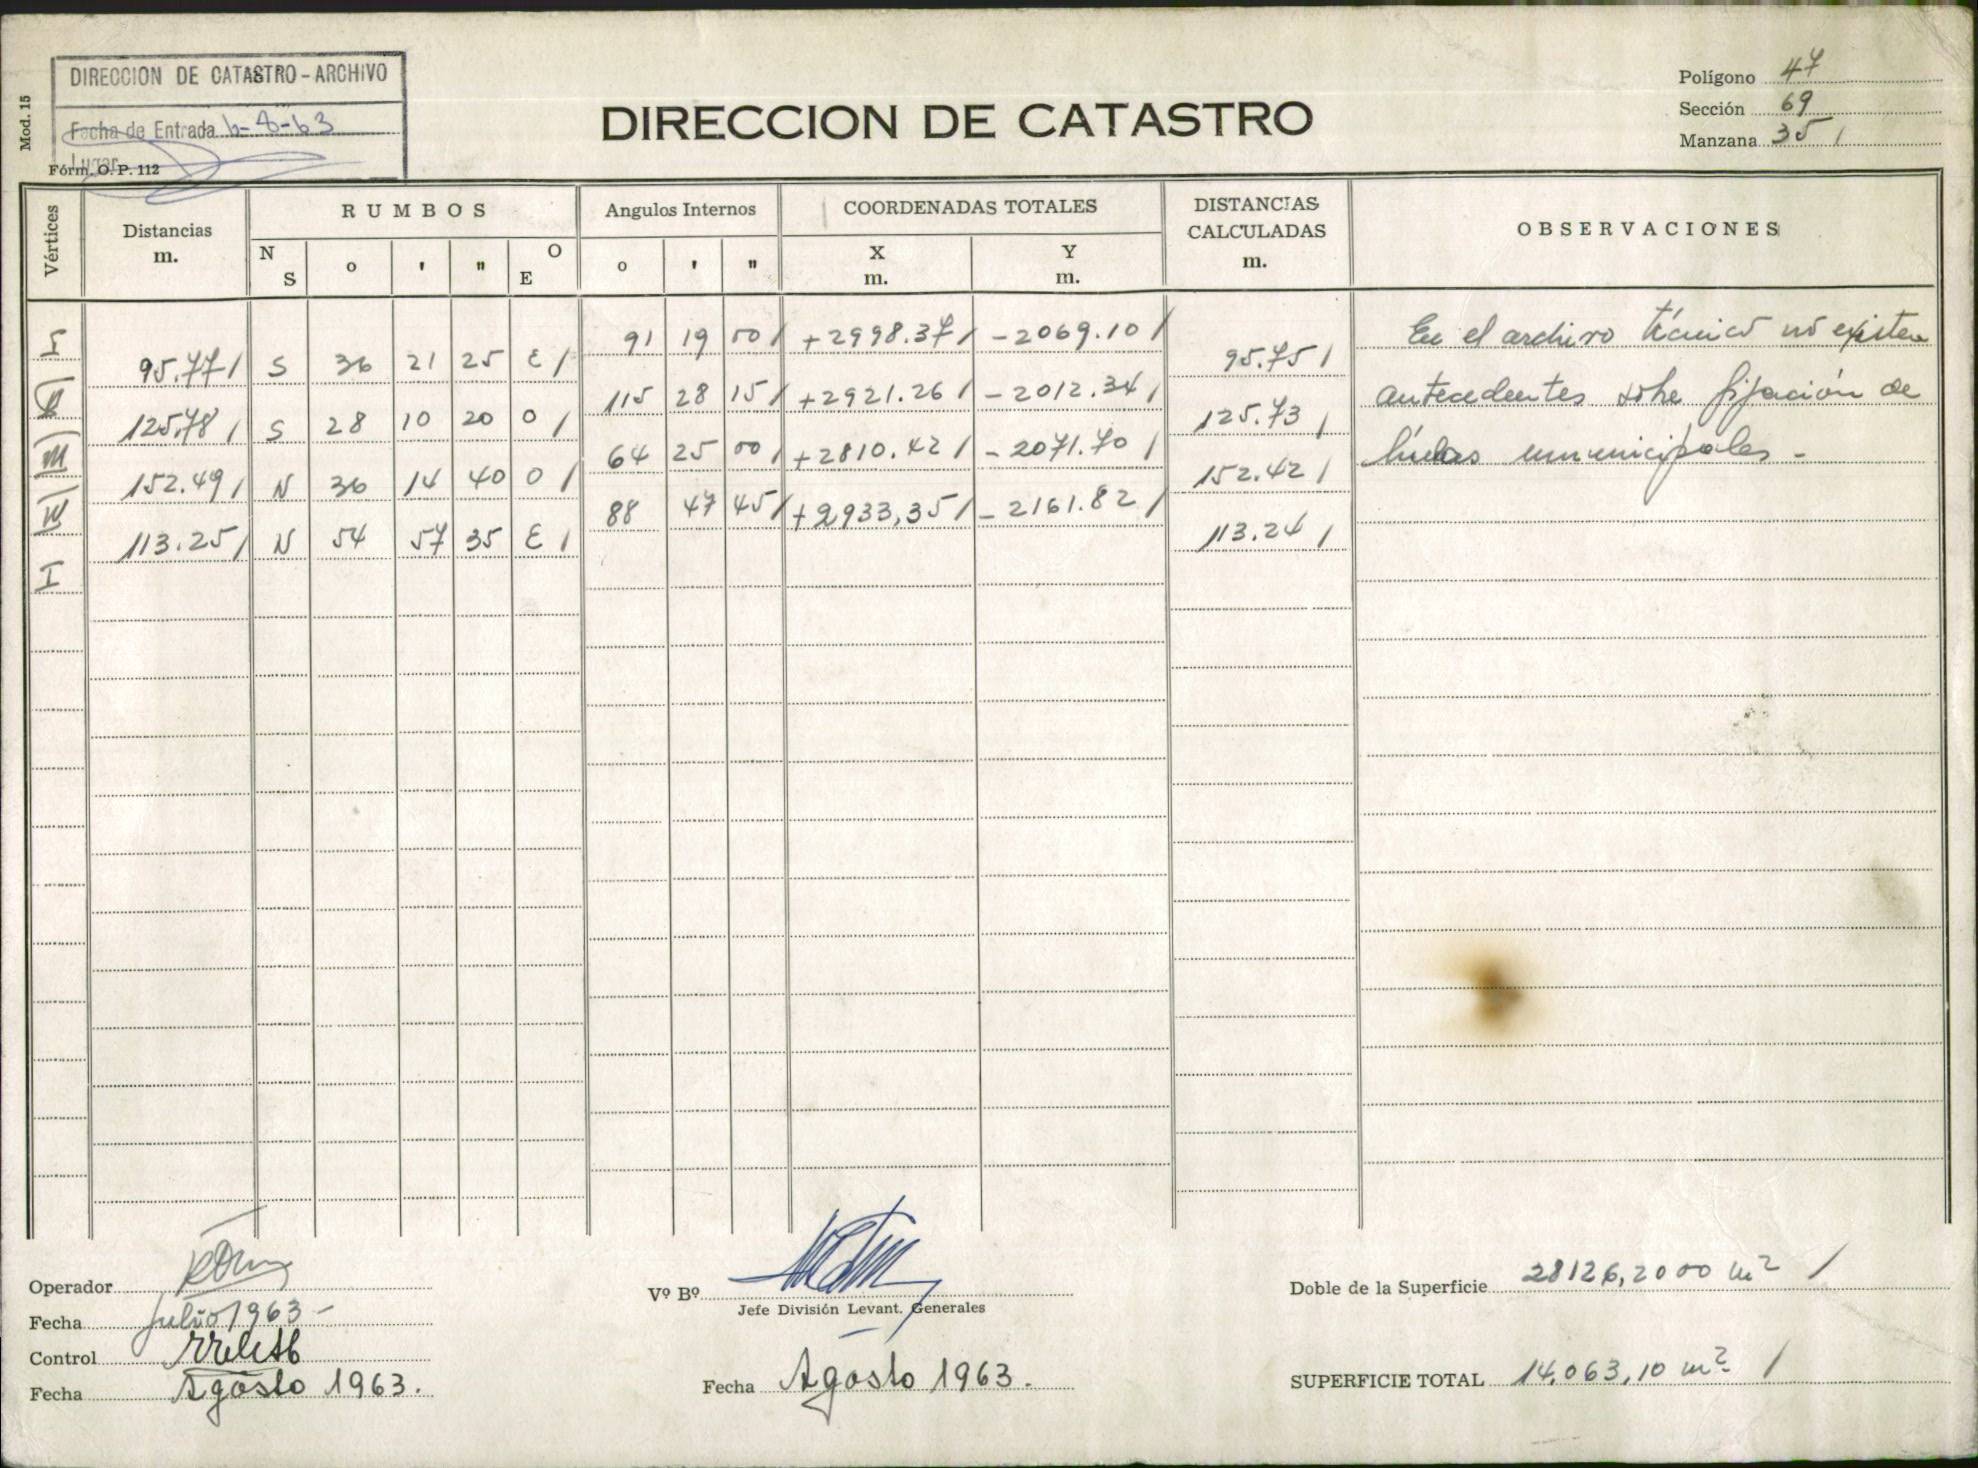 DIRECCION DE CATASTRO - ARCHIVO
Fecha de Entrada 6-8-63
Lugar
Mod. 15
Fórm. O. P. 112
DIRECCION DE CATASTRO
Polígono 47
Sección 69
Manzana 35 /
Vértices
Distancias
m.
RUMBOS
N S o ' " O E
Angulos Internos
o ' "
COORDENADAS TOTALES
X m. Y m.
DISTANCIAS
CALCULADAS
m.
OBSERVACIONES
I 91 19 00 / +2998.37 / -2069.10 /
95.77 / S 36 21 25 E / 95.75 /
II 115 28 15 / +2921.26 / -2012.34 /
125.78 / S 28 10 20 O / 125.73 /
III 64 25 00 / +2810.42 / -2071.70 /
152.49 / N 36 14 40 O / 152.42 /
IV 88 47 45 / +2933,35 / -2161.82 /
113.25 / N 54 57 35 E / 113.24 /
I
En el archivo técnico no existen
antecedentes sobre fijación de
líneas municipales -
Operador
Fecha Julio 1963 -
Control
Fecha Agosto 1963.
Vº Bº
Jefe División Levant. Generales
Fecha Agosto 1963.
Doble de la Superficie 28126,2000 m² /
SUPERFICIE TOTAL 14.063,10 m² /